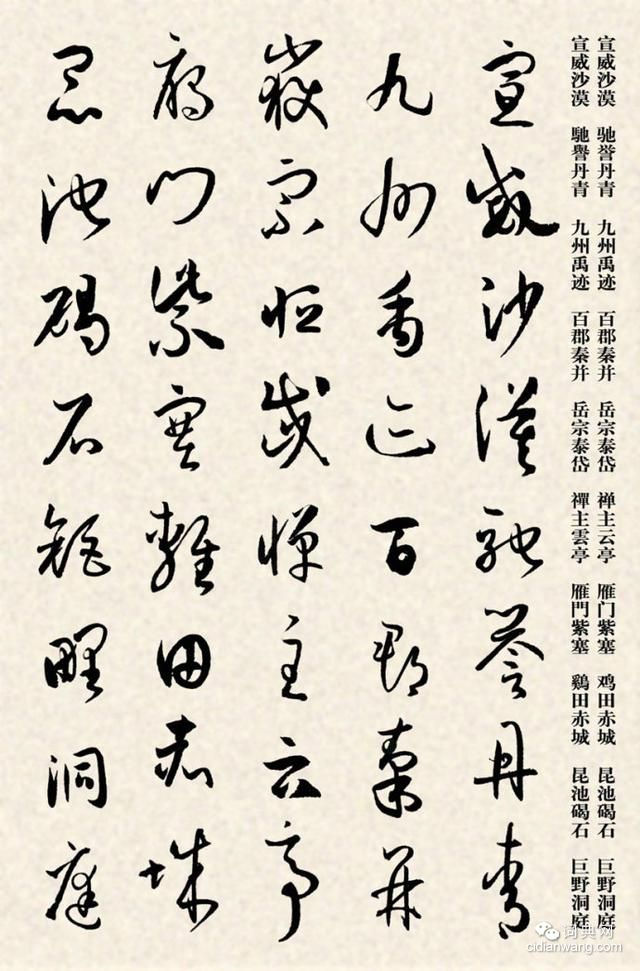 宣威沙漠 驰誉丹青 九州禹迹 百郡秦并 岳宗泰岱 禅主云亭 雁门紫塞 鸡田赤城 昆池碣石 巨野洞庭
宣威沙漠 馳譽丹青 九州禹迹 百郡秦并 岳宗泰岱 禪主雲亭 雁門紫塞 鷄田赤城 昆池碣石 巨野洞庭
宣威沙漠馳譽丹青
九州禹迹百郡秦并
嶽宗恒岱禪主云亭
雁門紫塞雞田赤城
昆池碣石鉅野洞庭
词典网
cidianwang.com